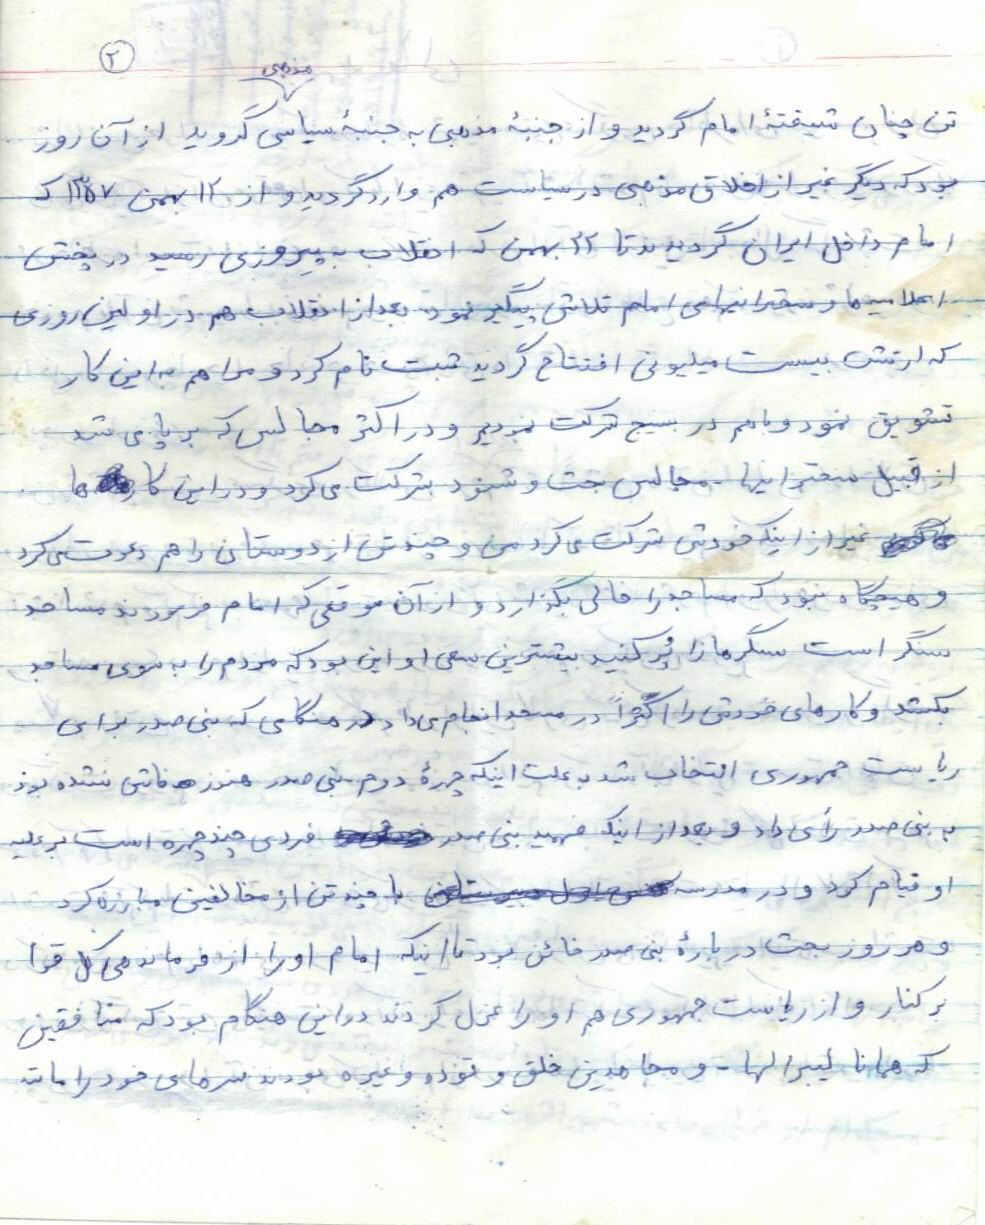 ۲
مذهبی
تن چنان شیفتهٔ امام گردید و از جنبهٔ مذهبی به جنبهٔ سیاسی گروید از آن روز
بود که دیگر غیر از اخلاق مذهبی در سیاست هم وارد گردید و از ۱۲ بهمن ۱۳۵۷ که
امام داخل ایران گردیدند تا ۲۲ بهمن که انقلاب به پیروزی رسید در پخش
اعلامیه‌ها و سخنرانیهای امام تلاش پیگیر نمود بعد از انقلاب هم در اولین روزی
که ارتش بیست میلیونی افتتاح گردید ثبت نام کرد و مرا هم به این کار
تشویق نمود و باهم در بسیج شرکت نمودیم و در اکثر مجالس که بر پا می شد
از قبیل سخنرانیها - مجالس بحث و شنود شرکت می کرد و در این کار ها
غیر از اینکه خودش شرکت می کرد من و چند تن از دوستان را هم دعوت می کرد
و هیچگاه نبود که مساجد را خالی بگذارد و از آن موقعی که امام فرمودند مساجد
سنگر است سنگرها را پُر کنید بیشترین سعی او این بود که مردم را به سوی مساجد
بکشد و کارهای خودش را اکثراً در مسجد انجام می داد در هنگامی که بنی صدر برای
ریاست جمهوری انتخاب شد به علت اینکه چهرهٔ دوم بنی صدر هنوز فاش نشده بود
به بنی صدر رأی داد و بعد از اینکه فهمید بنی صدر فردی چند چهره است بر علیه
او قیام کرد و در مدرسه با چند تن از مخالفین مبارزه کرد
و هر روز بحث دربارهٔ بنی صدر خائن بود تا اینکه امام او را از فرماندهی کل قوا
برکنار و از ریاست جمهوری هم او را عزل کردند در این هنگام بود که منافقین
که همانا لیبرالها - و مجاهدین خلق و توده و غیره بودند سرهای خود را مانند